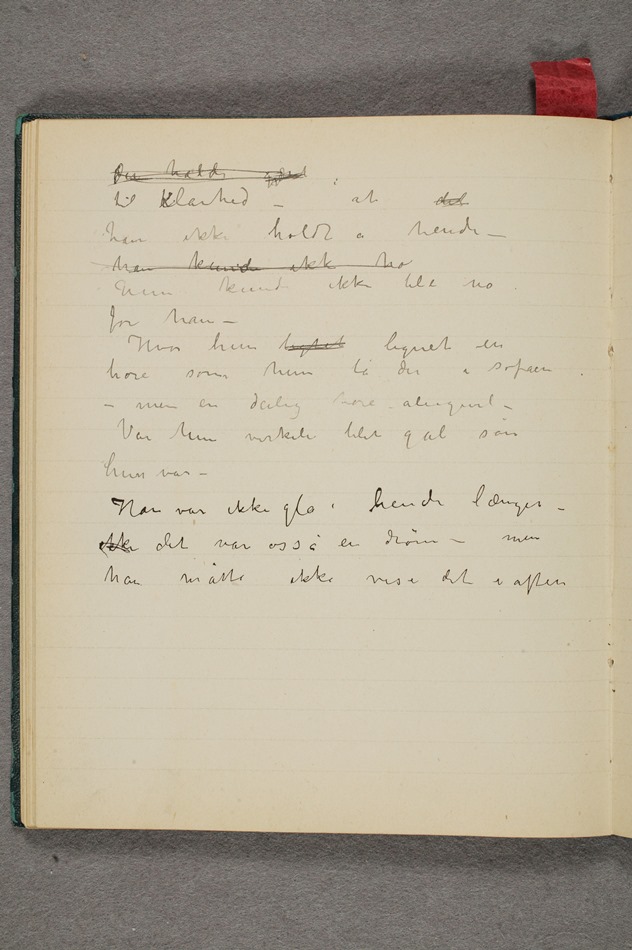 til Klarhed – at det
han ikke holdt a hende –
han kunde ikk no
Hun kunde ikke bli no
for han –
Hvor hun lignet en
hore som hun lå der i sofaen
– men en deilig hore alligevel –
Var hun virkeli blet gal sån
hun var –
Han var ikke gla i hende længer –
ikke det var osså en drøm – men
han måtte ikke vise det i aften